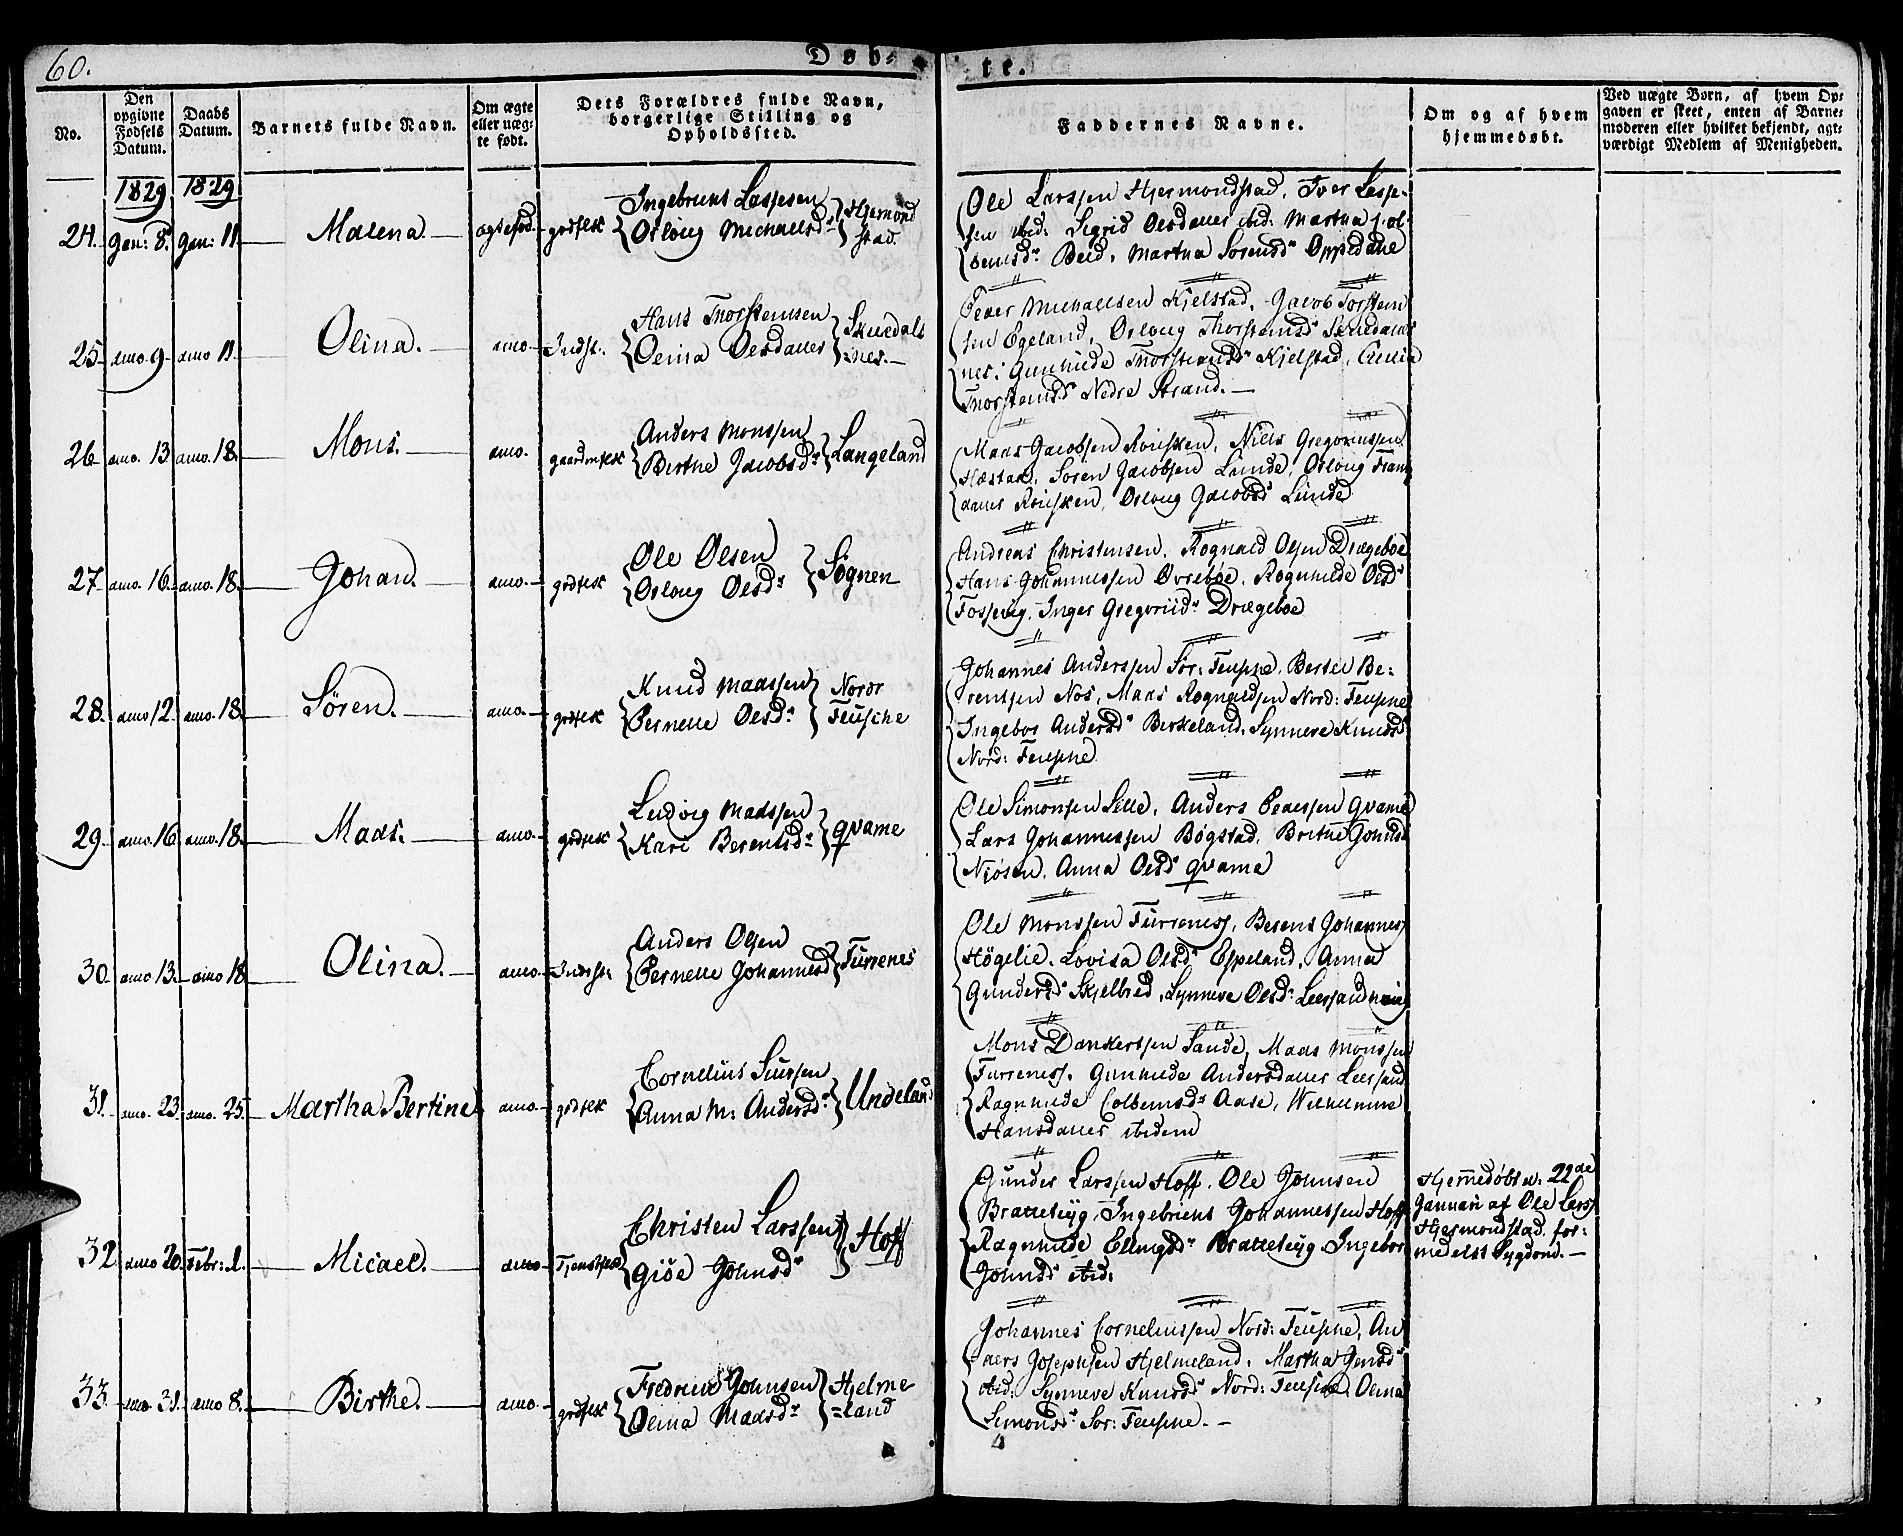 60.
Døb-
te.
No.
Den
opgivne
Fødsels
Datum.
Daabs
Datum.
Barnets fulde Navn.
Om ægte
eller uæg-
te født.
Dets Forældres fulde Navn,
borgerlige Stilling og
Opholdssted.
Faddernes Navne.
Om og af hvem
hjemmedøbt.
Ved uægte Børn, af hvem Op-
gaven er skeet, enten af Barne-
moderen eller hvilket bekjendt, agt-
værdigt Medlem af Menigheden.
1829 1829
24. Jan: 8. Jan: 11 Malena. ægtefød. grdfolk
Ingebricht Lassesen
Orloug Michaelsdr
Hjermond
stad.
Ole Larssen Hjermondstad, Iver Lasse-
sen ibid: Sigrid Olesdatter ibid: Martha
Martha Sørensdr Oppedahl
25. dito 9 dito 11 Olina. dito Indst.
Hans Thorstensen
Olina Olesdatter
Skuedals
nes.
Peder Michaelsen Kjelstad, Jacob Torsten
sen Egeland, Orloug Thorstensdr Skuedals
nes, Gunhilde Thorstensdr Kjelstad, Cecilia
Thorstensdr Nedre Strand.
26 dito. 13 dito. 18. Mons. dito. gaardmfolk
Anders Monssen
Berthe Jacobsdr
Langeland
Mads Jacobsen Róiesken, Niels Gregoriussen
Hæstad, Søren Jacobsen Lunde, Orloug
datter Róiesken, Orloug Jacobsdr Lunde
27 dito. 16. dito. 18. Johan. dito. grdfolk
Ole Olsen
Orloug Olesdr
Søgnen
Andreas Christensen, Rognald Olsen Drægebøe
Hans Johannessen Øvrebøe, Rognhilde Olesdr
Fossevig, Inger Gregoriidr Drægeboe
28. dito 12. dito. 18. Søren. dito. grdfolk
Knud Madssen
Pernelle Olesdr
Nordr
Teusche
Johannes Anderssen Sør: Teusche, Bertel Be-
rentsen Nos, Mads Rognaldsen Nord: Teusche
Ingebor Andersdr Birkeland, Synneve Knudsdr
Nord: Teusche
29. dito. 16 dito. 18. Mads. dito grdfolk
Ludvig Madssen
Kari Berentsdr
Qvame
Ole Simonsen Sille, Anders Pedersen Qvame
Lars Johannessen Bøgstad, Brithe Johnsdr
Niøsen, Anna Olesdr Qvame
30. dito 13. dito 18 Olina. dito Indst:
Anders Olsen
Pernelle Johannesdr
Turrenes
Ole Monssen Turreness, Berent Johannes
Høgelie, Lovisa Olesdr Espeland, Anna
Gundersdr Skjelbred, Synneve Olesdr
31. dito. 23. dito. 25. Martha Bertine dito. grdfolk
Cornelius Siursen
Anna M: Andersdr
Undeland
Mons Dankertsen Sande, Mads Monssen
Turreness, Gunhilde Andersdatter
Ragnhilde Colbensdr Aase, Wilhelmine
Hansdatter ibidem
32 dito 20. Febr: 1. Micael. dito
Christen Larssen
Giøe Johnsdr
Hoff
Gunder Larssen Hoff, Ole Johnsen
Brattelyg, Ingebricht Johannessen Hoff
Ragnhilde Ellingsdr Brattelyg Ingebor
Johnsdr ibid:
Hjemedøbt d: 22de
Januari af Ole Larss
Hjermondstad for-
medelst Sygdom.
33. dito 31. dito 8. Birthe. dito. grdfolk
Fredrich Johnsen
Olina Madsdr
Hjelme
land
Johannes Corneliussen Nord: Teusche, An
ders Josephsen Hjelmeland, Martha Jensdr
ibid: Synneve Knudsdr Nord: Teusche, Olina
Simonsdr Sør: Teusche.